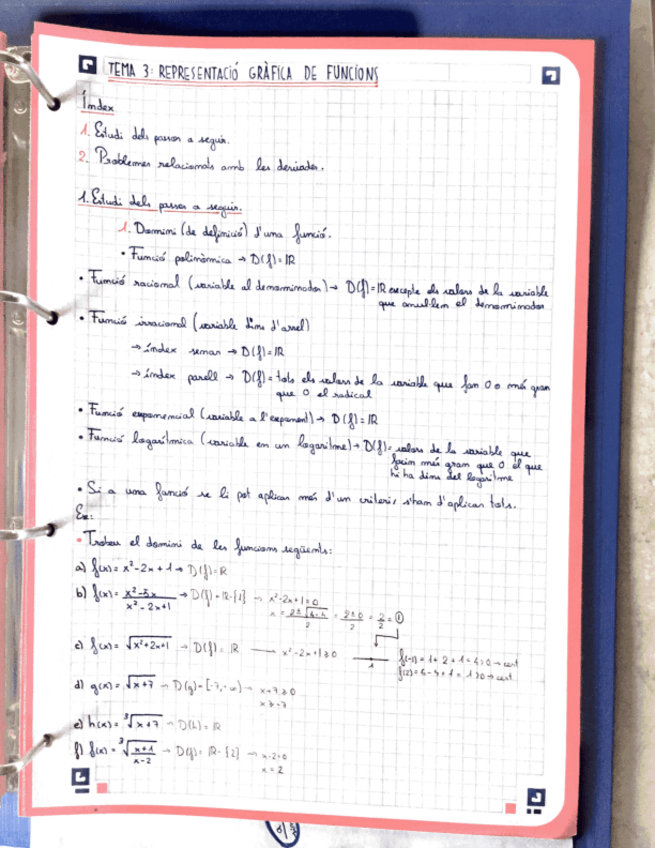 TEMA 3: REPRESENTACIÓ GRÀFICA DE FUNCIONS
Índex
1. Estudi dels passos a seguir.
2. Problemes relacionats amb les derivades.
1. Estudi dels passos a seguir.
1. Domini (de definició) d'una funció.
• Funció polinòmica → D(f)=ℝ
• Funció racional (variable al denominador) → D(f)=ℝ excepte els valors de la variable
que anul·len el denominador
• Funció irracional (variable dins d'arrel)
→ índex senar → D(f)=ℝ
→ índex parell → D(f)= tots els valors de la variable que fan 0 o més gran
que 0 el radical
• Funció exponencial (variable a l'exponent) → D(f)=ℝ
• Funció logarítmica (variable en un logaritme) → D(f)= valors de la variable que
facin més gran que 0 el que
hi ha dins del logaritme
• Si a una funció se li pot aplicar més d'un criteri, s'han d'aplicar tots.
Ex:
• Trobeu el domini de les funcions següents:
a) f(x)= x²-2x+1 → D(f)=ℝ
b) f(x)= (x²-5x)/(x²-2x+1) → D(f)=ℝ-{1} → x²-2x+1=0
x = (2±√4-4)/2 = (2±0)/2 = 2/2 = 1
c) f(x)= √x²+2x+1 → D(f)=ℝ — x²-2x+1≥0
1
f(-1)=1+2+1=4>0 → cert
f(2)=4-4+1=1>0 → cert
d) g(x)= √x+7 → D(g)=[-7,-∞) → x+7≥0
x≥-7
e) h(x)= ³√x+7 → D(h)=ℝ
f) f(x)= ³√(x+1)/(x-2) → D(f)=ℝ-{2} → x-2=0
x=2